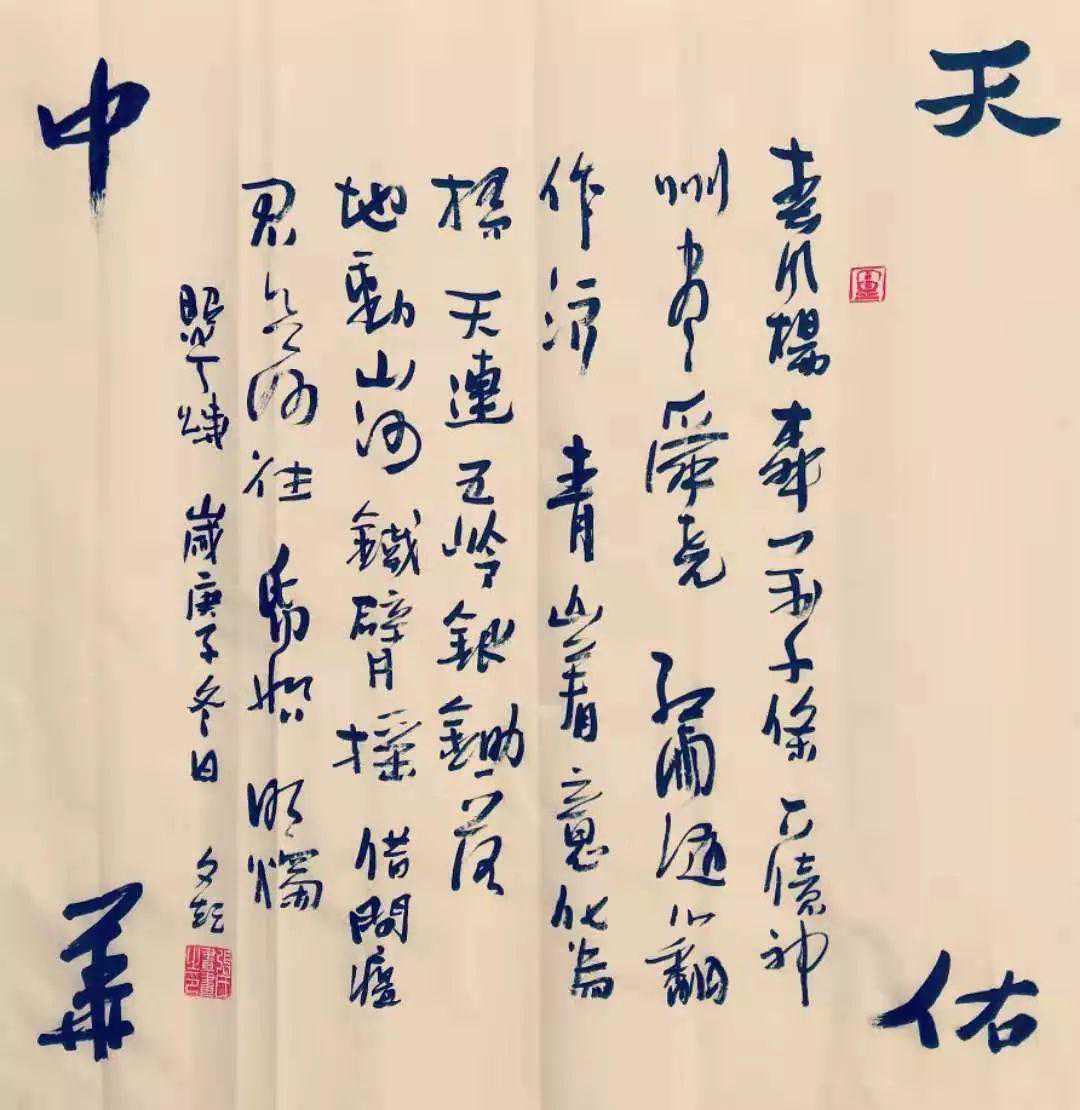 天
佑
春風楊柳万千條六億神
州盡舜堯紅雨隨心翻
作浪青山着意化為
橋天連五岭銀鋤落
地動山河鐵臂摇借問瘟
君欲何往紙船明燭
照天燒歲庚子冬日文
中
華